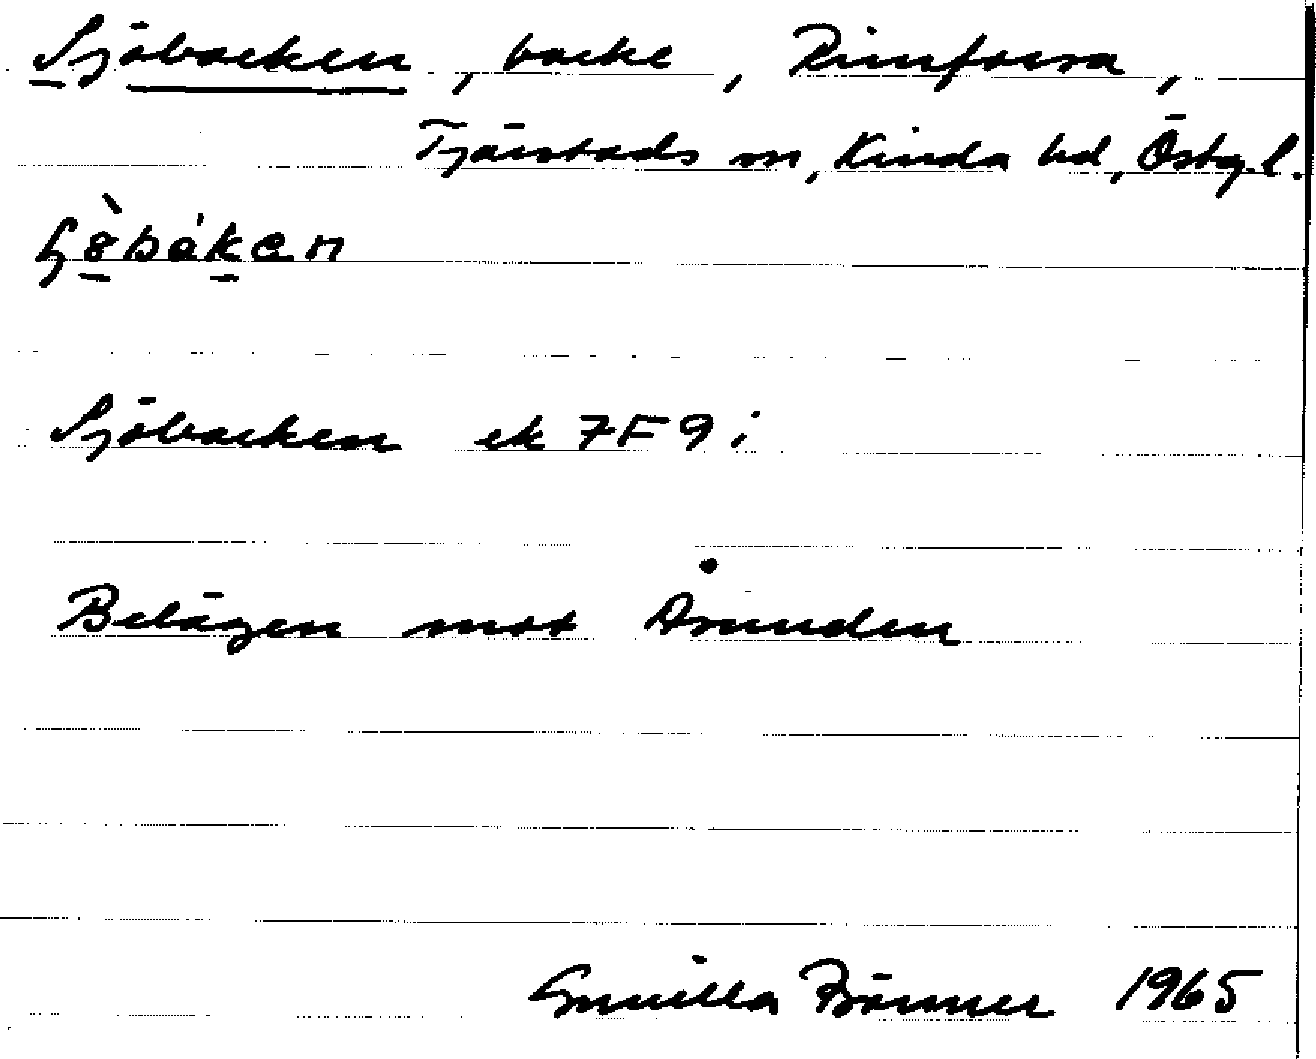 Sjöbacken, backe, Rimforsa,
Tjärstads sn, Kinda hd, Östg.l.
Sjöbacken ek 7F9i
Belägen mot Åsunden
Gunilla 1965